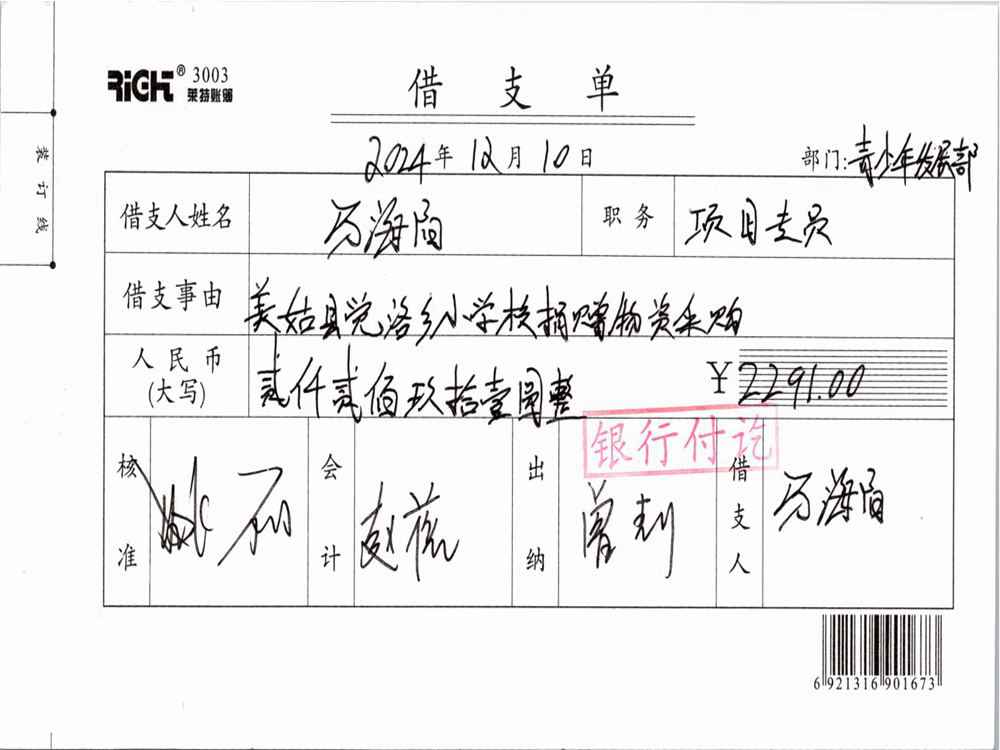 RiGHT® 3003
莱特账簿
借支单
2024年12月10日
部门:青少年发展部
装订线
借支人姓名 职务 项目专员
借支事由 美姑县觉洛乡小学校捐赠物资采购
人民币(大写) 贰仟贰佰玖拾壹圆整 ¥2291.00
银行付讫
核准 会计 赵 出纳 曾 借支人
6 921316 901673